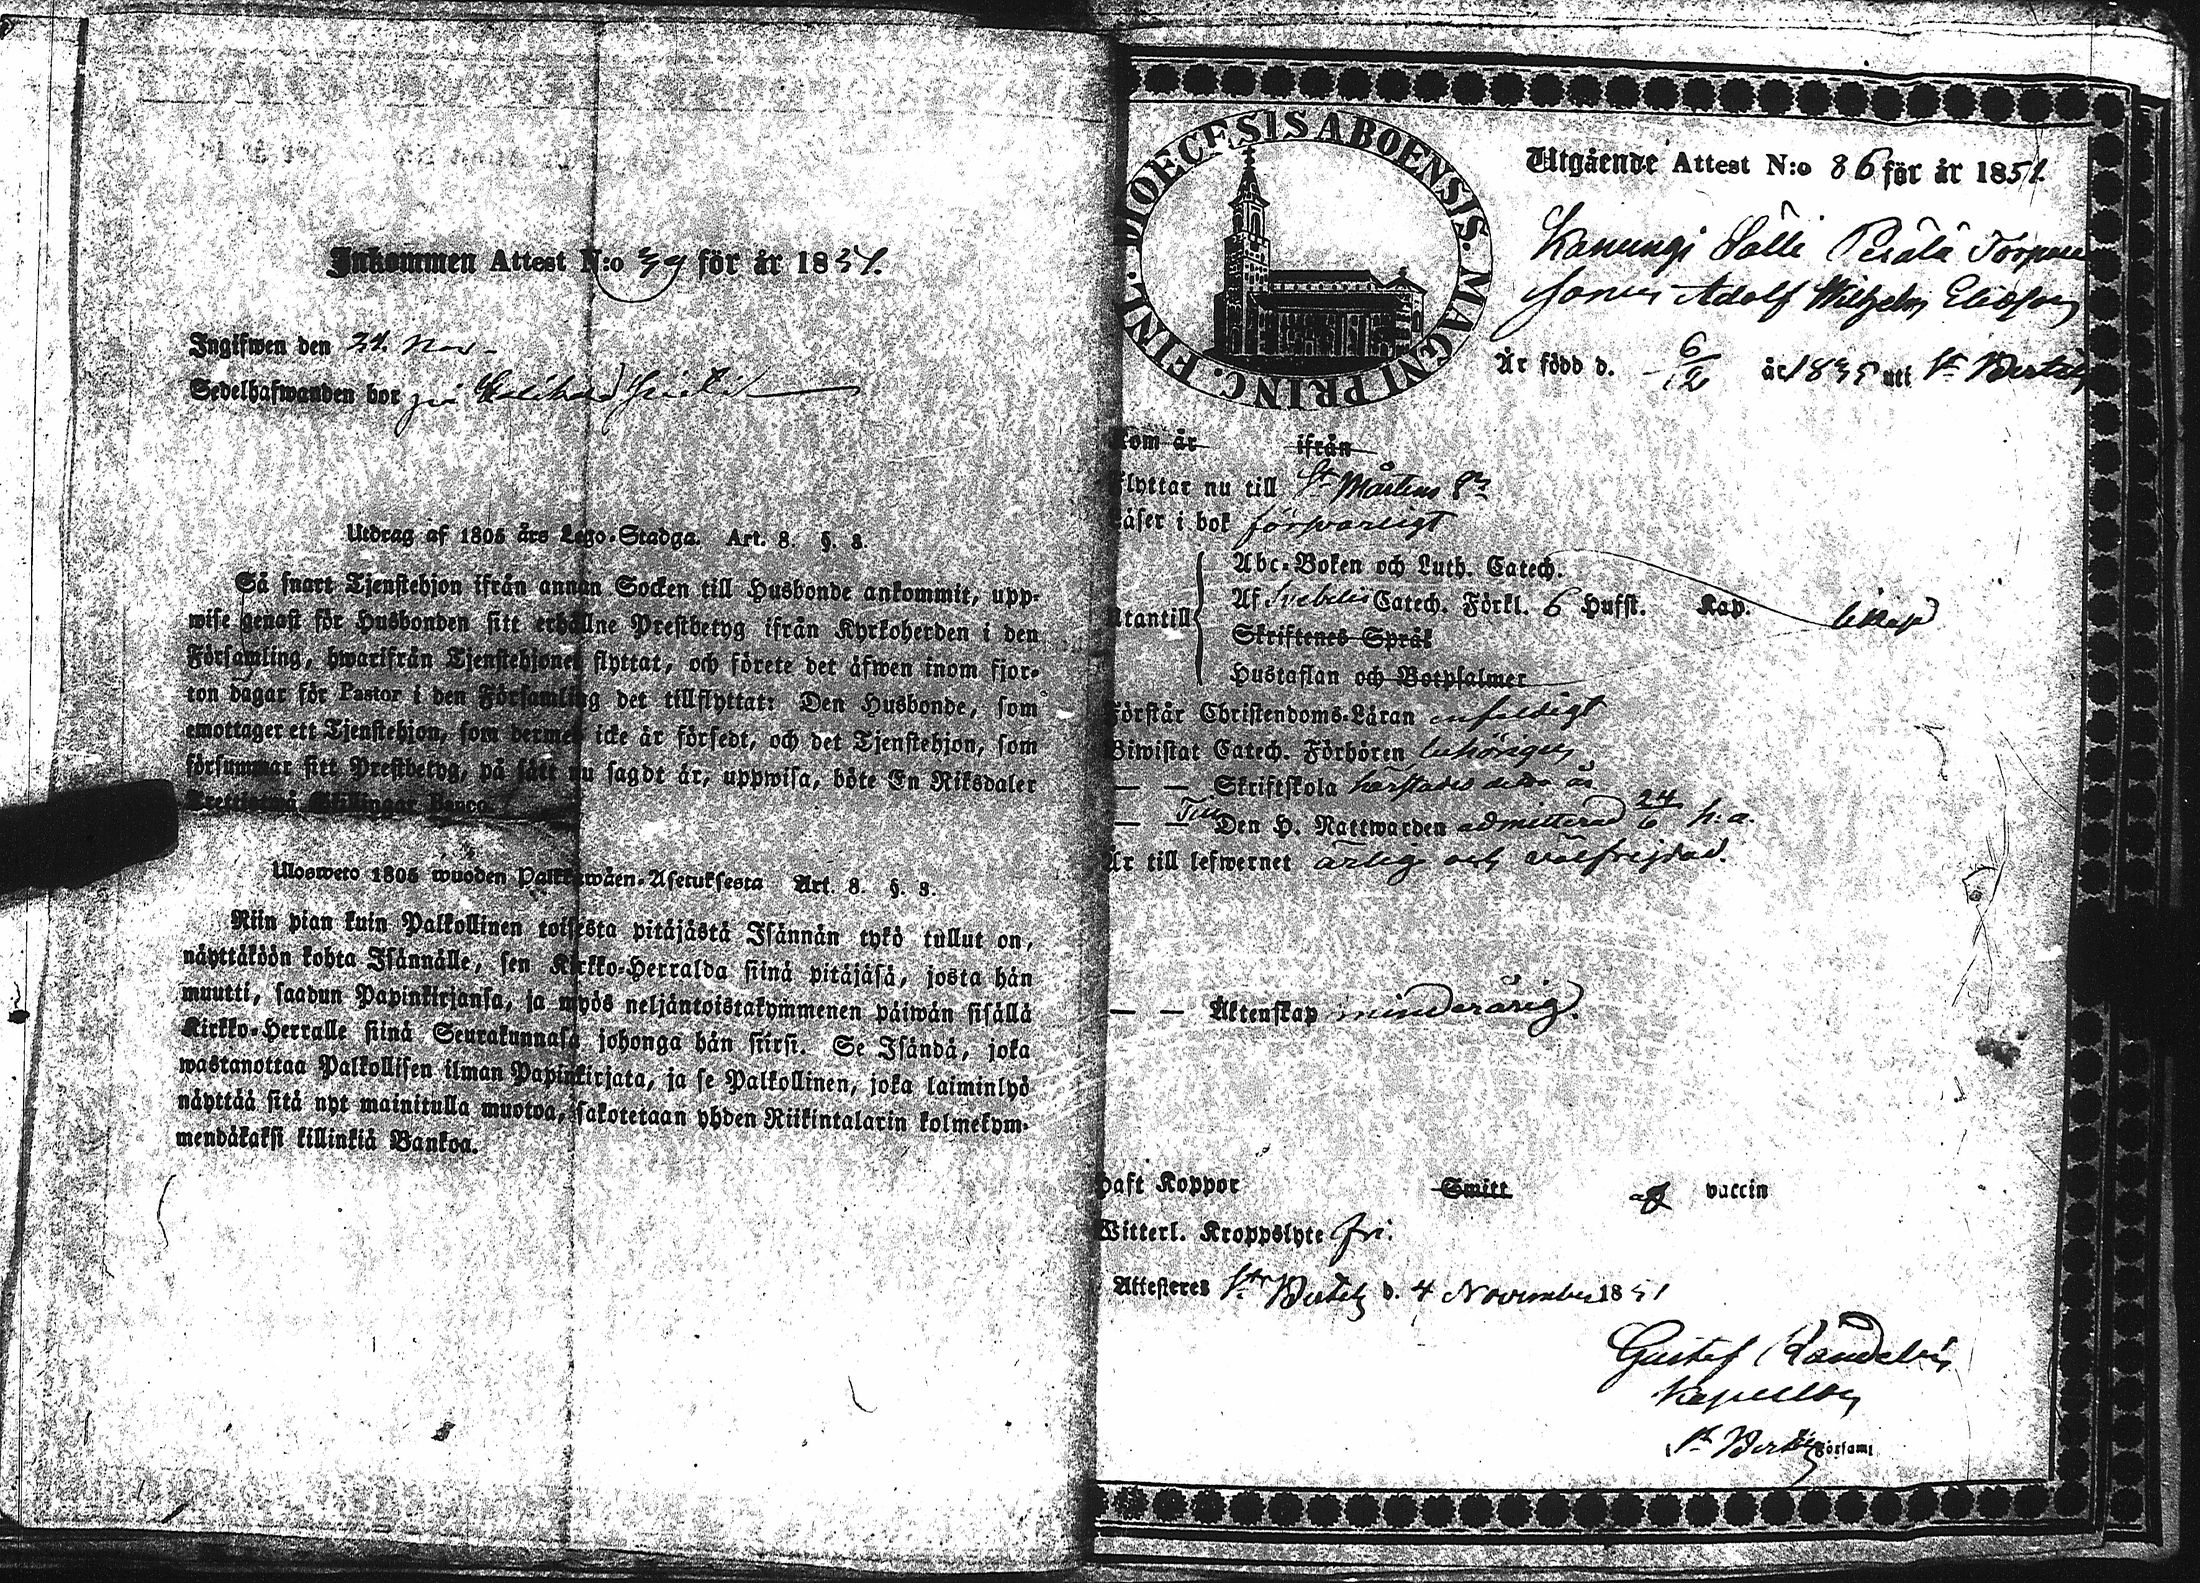 Inkommen Attest N:o 39 för år 1851.
Ingifwen den 24. Nov.
Sedelhafwanden bor på
Utdrag af 1805 års Lego-Stadga. Art. 8. §. 3.
Så snart Tjenstehjon ifrån annan Socken till Husbonde ankommit, upp-
wise genast för Husbonden sitt erhållne Prestbetyg ifrån Kyrkoherden i den
Församling, hwarifrån Tjenstehjonet flyttat, och förete det äfwen inom fjor-
ton dagar för Pastor i den Församling det tillflyttat: Den Husbonde, som
emottager ett Tjenstehjon, som dermed icke är försedt, och det Tjenstehjon, som
försummar sitt Prestbetyg, på sätt nu sagdt är, uppwisa, böte En Riksdaler
Trettiotwå Skillingar Banco.
Ulosweto 1805 wuoden Palkkawäen-Asetuksesta Art. 8. §. 3.
Niin pian kuin Palkollinen toisesta pitäjästä Isännän tykö tullut on,
näyttäköön kohta Isännälle, sen Kirkko-Herralda siinä pitäjäsä, josta hän
muutti, saadun Papinkirjansa, ja myös neljäntoistakymmenen päiwän sisällä
Kirkko-Herralle siinä Seurakunnasa johonga hän siirsi. Se Isändä, joka
wastanottaa Palkollisen ilman Papinkirjata, ja se Palkollinen, joka laiminlyö
näyttää sitä nyt mainitulla muotoa, sakotetaan yhden Riikintalarin kolmekym-
mendäkaksi killinkiä Bankoa.
FINL. DIOECESIS ABOENSIS. MAGNI PRINC.
Utgående Attest N:o 86 för år 1851.
Kanungi Sålli Perälä Torpare
sonen Adolf Wilhelm Eliasson
Är född d. 6/12 år 1835 uti St Bertils
Kom år ifrån
Flyttar nu till St Mårtens
Läser i bok försvarligt
Abc-Boken och Luth. Catech.
Utantill Af Svebelii Catech. Förkl. 6 Hufst. Kap.
Skriftenes Språk
Hustaflan och Botpsalmer
Förstår Christendoms-Läran enfaldigt
Biwistat Catech. Förhören behörigen
— — Skriftskola härstädes detta år
— — Till Den H. Nattwarden admitterad 24/6 h.a.
Är till lefwernet ärlig och välfrejdad.
— — Äktenskap minderårig.
Haft Koppor Smitt af vaccin
Witterl. Kroppslyte fri.
Attesteres St Bertils d. 4 November 1851
Gustaf
Kapellan
i St Bertils Församl